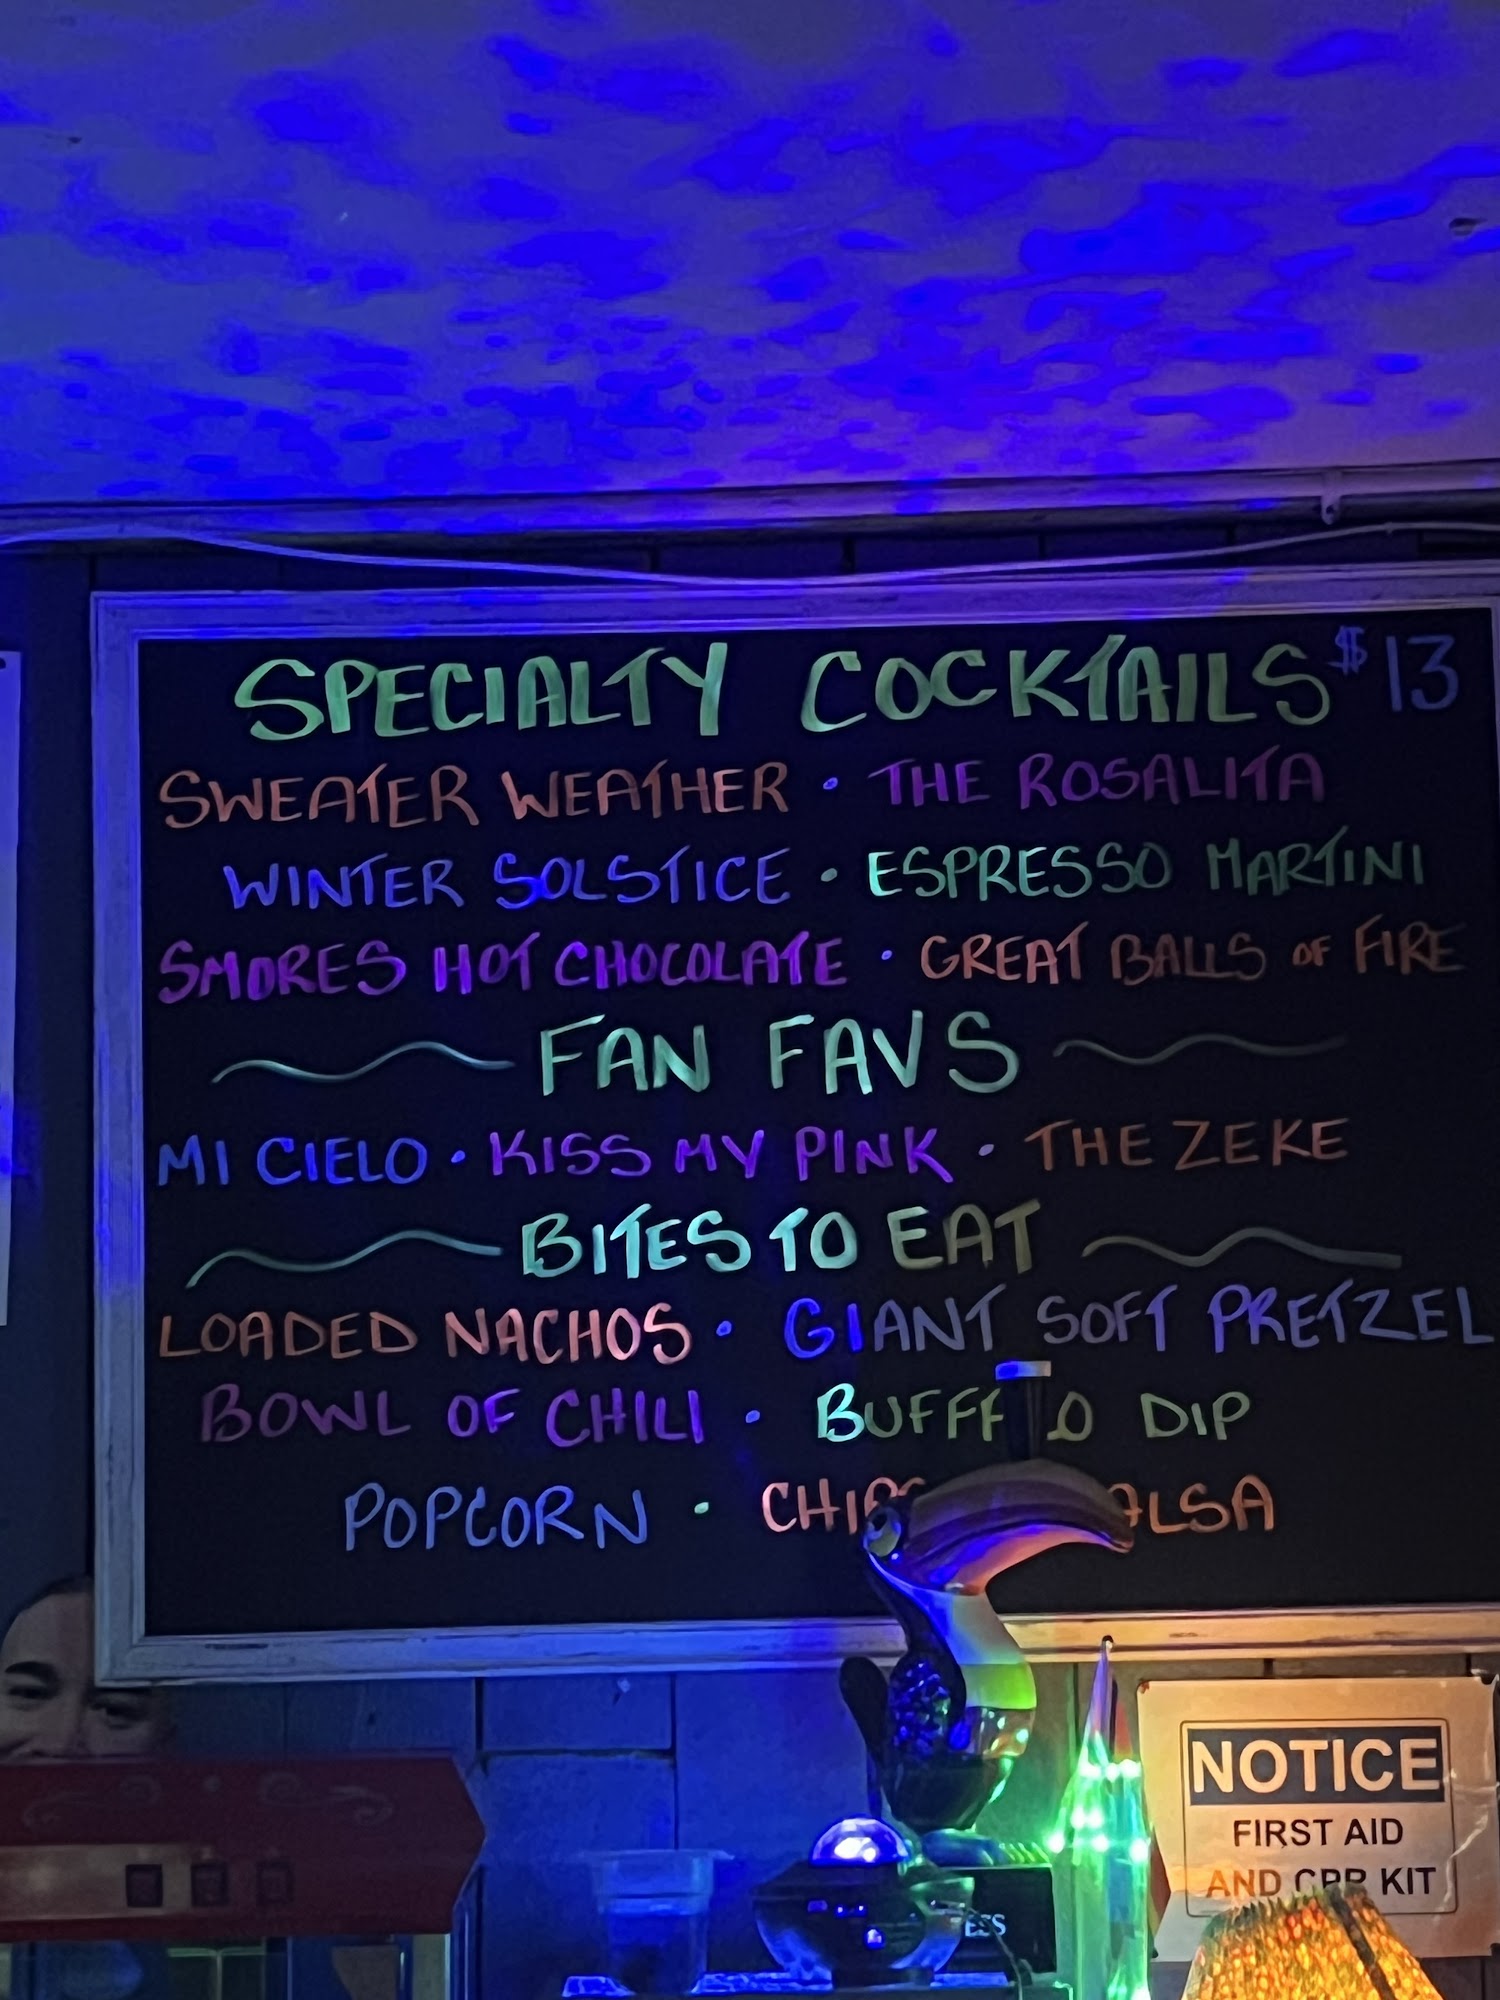 SPECIALTY COCKTAILS $13
SWEATER WEATHER • THE ROSALITA
WINTER SOLSTICE • ESPRESSO MARTINI
SMORES HOT CHOCOLATE • GREAT BALLS OF FIRE
FAN FAVS
MI CIELO • KISS MY PINK • THE ZEKE
BITES TO EAT
LOADED NACHOS • GIANT SOFT PRETZEL
BOWL OF CHILI • DIP
POPCORN •
NOTICE
FIRST AID
AND CPR KIT